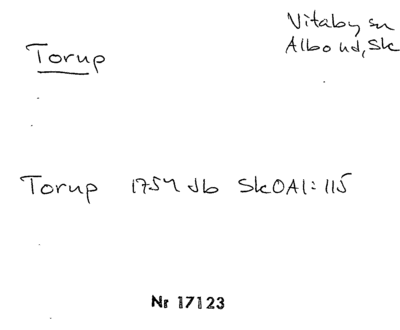 Torup
Vitaby sn
Albo hd, Sk
Torup 1754 Jb SkOAl: 115
Nr 17123